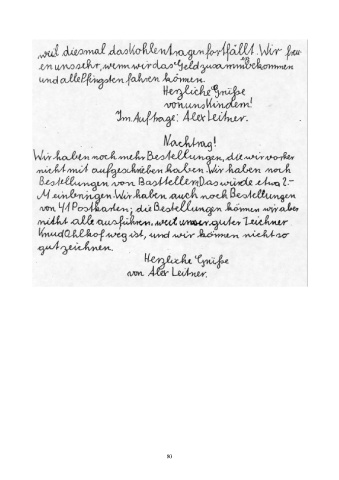 weil diesmal das Kohlentragen fortfällt. Wir freu
en uns sehr, wenn wir das Geld zusammbekommen
en
und alle Pfingsten fahren können.
Herzliche Grüße
von uns Kindern!
Im Auftrage: Alex Leitner.
Nachtrag!
Wir haben noch mehr Bestellungen, die wir vorher
nicht mit aufgeschrieben haben. Wir haben noch
Bestellungen von Bastteller. Das würde etwa 2.-
M einbringen. Wir haben auch noch Bestellungen
von 41 Postkarten; die Bestellungen können wir aber
nicht alle ausführen, weil unser guter Zeichner
Knud Ahlhof weg ist, und wir können nicht so
gut zeichnen.
Herzliche Grüße
von Alex Leitner.
80